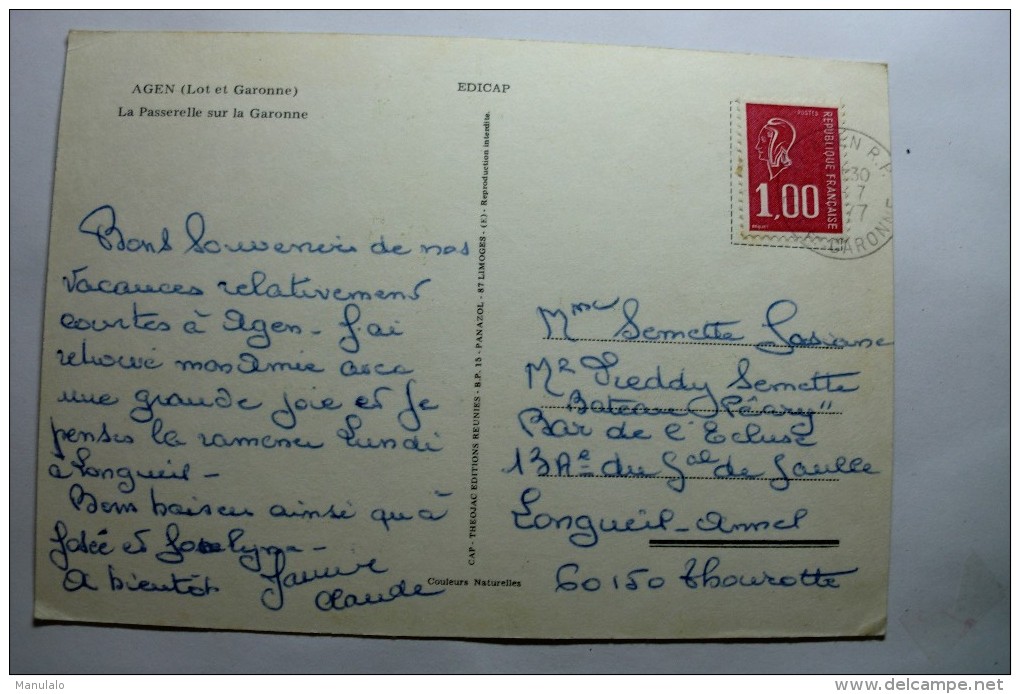 AGEN (Lot et Garonne)
La Passerelle sur la Garonne
EDICAP
CAP - THEOJAC EDITIONS REUNIES - B.P. 15 - PANAZOL - 87 LIMOGES - (E) - Reproduction interdite.
Couleurs Naturelles
POSTES
REPUBLIQUE FRANÇAISE
1,00
BEQUET
N R.P.
30
7
77
GARONNE
Bons Souvenirs de nos
vacances relativement
courtes à Agen - J'ai
retrouvé mon Amie avec
une grande joie et je
penses la ramener Lundi
à Longueil -
Bons baisers ainsi qu'à
Josée et Jocelyne -
A bientôt
Claude
Mme Semette Josiane
Mr Freddy Semette
"Bateau Péary"
Bar de l'Ecluse
13 Ae du Gal de Gaulle
Longueil-Annel
60150 Thourotte
Manulalo
delcampe.net